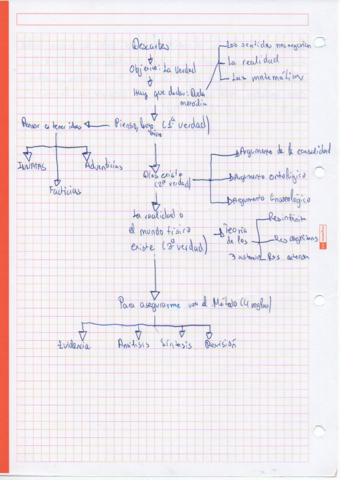 Descartes
Los sentidos me engañan
La realidad
Las matemáticas
Objetivo: La Verdad
Hay que dudar: Duda
metódica
Pensar es tener ideas
Pienso, luego (1ª verdad)
Innatas
Adventicias
Facticias
Dios existe
(2ª verdad)
Argumento de la causalidad
Argumento ontológico
Argumento
La realidad o
el mundo físico
existe (3ª verdad)
Teoría
de las
3 sustancias
Res infinita
Res cogitans
Res extensa
Para asegurarme uso el Método (4 reglas)
Evidencia
Análisis
Síntesis
Revisión